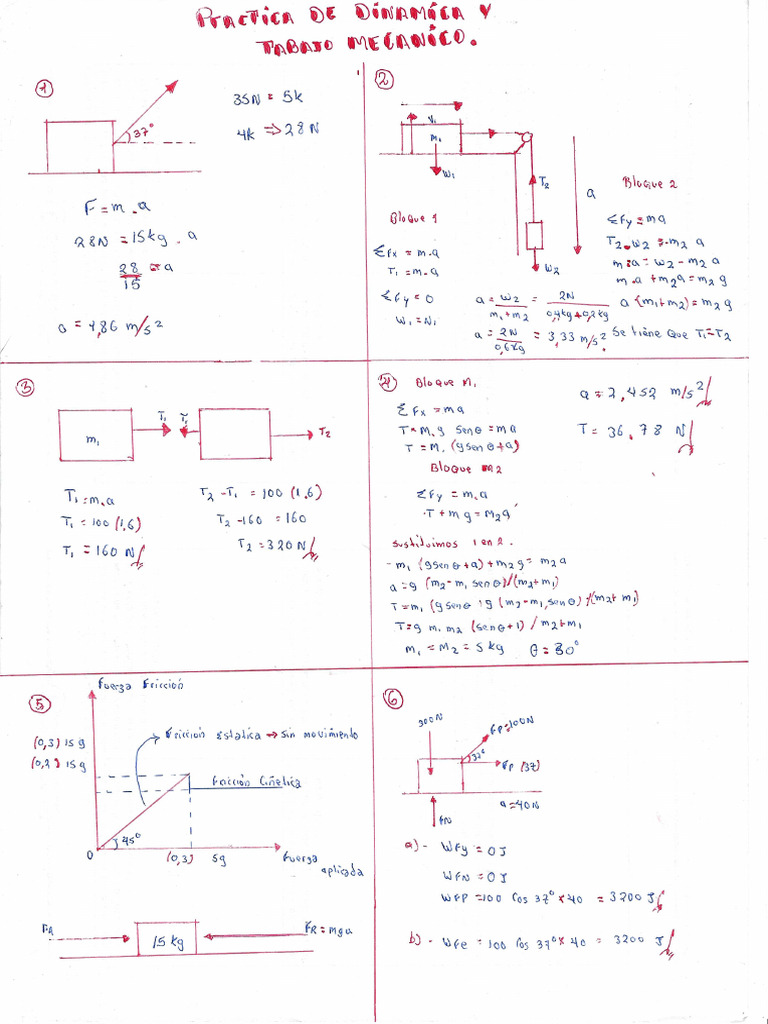 PRACTICA DE DINAMICA Y
TABAJO MECANICO.
1
37°
35N = 5k
4k ⇒ 28N
F = m . a
28N = 15kg . a
28/15 = a
a = 4,86 m/s²
2
V₁
M₁
W₁
T₂
W₂
a
Bloque 1
ΣFx = m.a
T₁ = m.a
ΣFy = 0
W₁ = N₁
Bloque 2
ΣFy = ma
T₂ - W₂ = -m₂ a
m.a = W₂ - m₂ a
m.a + m₂a = m₂ g
a (m₁+m₂) = m₂ g
a = W₂/m₁+m₂ = 2N/0,4kg+0,2kg
a = 2N/0,6kg = 3,33 m/s² Se tiene que T₁=T₂
3
m₁
T₁
T₁
T₂
T₁ = m.a
T₁ = 100 (1,6)
T₁ = 160 N
T₂ - T₁ = 100 (1,6)
T₂ - 160 = 160
T₂ = 320 N
4
Bloque M₁
ΣFx = ma
T - M₁ g senθ = ma
T = M₁ (g senθ + a)
Bloque m2
ΣFy = m.a
-T + m g = M₂a
Sustituimos 1 en 2.
- m₁ (gsenθ + a) + m₂g = m₂a
a = g (m₂ - m₁ senθ)/(m₂+m₁)
T = m₁ (gsenθ + g (m₂ - m₁ senθ) /(m₂+m₁)
T = g m₁ m₂ (senθ+1) / m₂+m₁
m₁ = M₂ = 5 kg θ = 30°
a = 2,452 m/s²
T = 36,78 N
5
Fuerza Fricción
(0,3) 15 g
(0,2) 15 g
Fricción Estatica → Sin movimiento
Fricción Cinetica
45°
0
(0,3) 5g
Fuerza
aplicada
FA
15 kg
FR = mga
6
300N
FP=100N
37°
FP (37)
a = 40N
FN
a) - WFy = 0J
WFN = 0J
WFP = 100 Cos 37° * 40 = 3200 J
b) - WFe = 100 Cos 37° * 40 = 3200 J